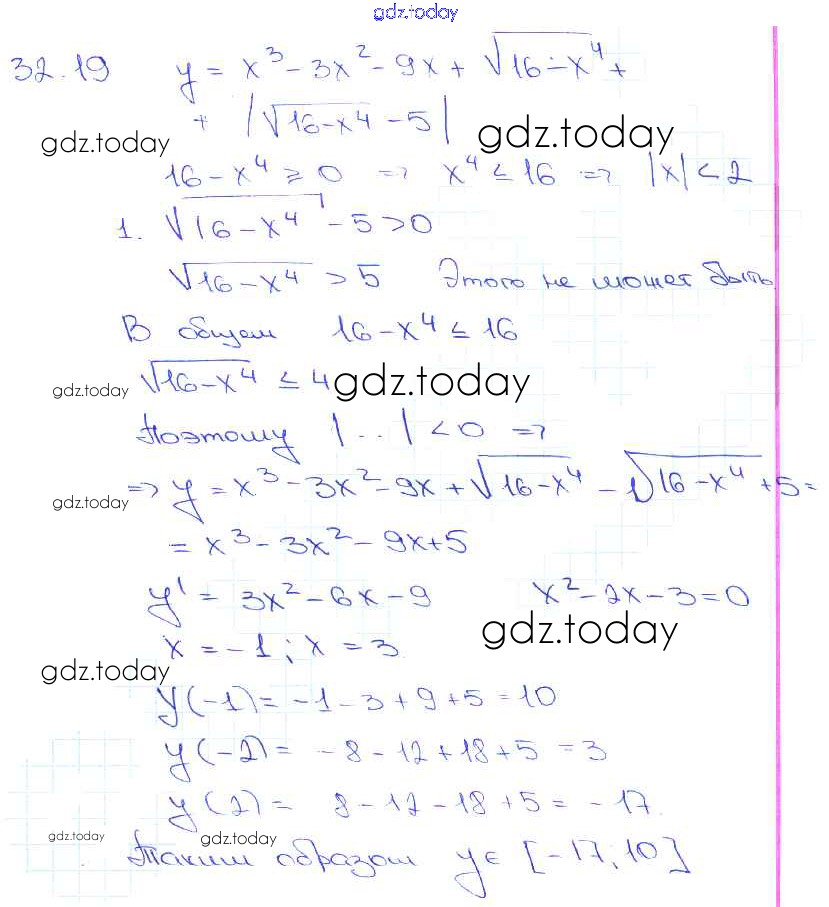 gdz.today
32.19 y = x³ - 3x² - 9x + √16 - x⁴ +
+ |√16-x⁴ - 5|
gdz.today gdz.today
16 - x⁴ ≥ 0 => x⁴ ≤ 16 => |x| < 2
1. √16 - x⁴ - 5 > 0
√16 - x⁴ > 5 Этого не может быть
В общем 16 - x⁴ ≤ 16
gdz.today √16 - x⁴ ≤ 4 gdz.today
Поэтому |..| < 0 =>
gdz.today => y = x³ - 3x² - 9x + √16 - x⁴ - √16 - x⁴ + 5 =
= x³ - 3x² - 9x + 5
y' = 3x² - 6x - 9 x² - 2x - 3 = 0
x = -1; x = 3 gdz.today
gdz.today
y(-1) = -1 - 3 + 9 + 5 = 10
y(-2) = -8 - 12 + 18 + 5 = 3
y(2) = 8 - 12 - 18 + 5 = -17.
gdz.today gdz.today
Таким образом y ∈ [-17; 10]